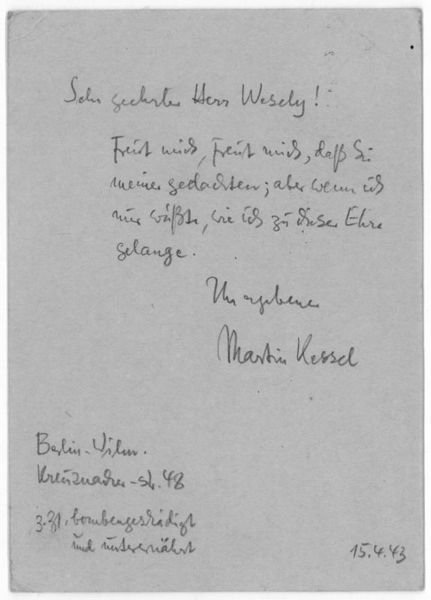 Sehr geehrter Herr Wesely!
Freut mich, freut mich, daß Sie
meiner gedachten; aber wenn ich
nur wüßte, wie ich zu dieser Ehre
gelange.
Ihr ergebener
Martin Kessel
Berlin-Wilm.
Kreuznacher-Str. 48
z. Zt. bombengeschädigt
und unterernährt
15.4.43